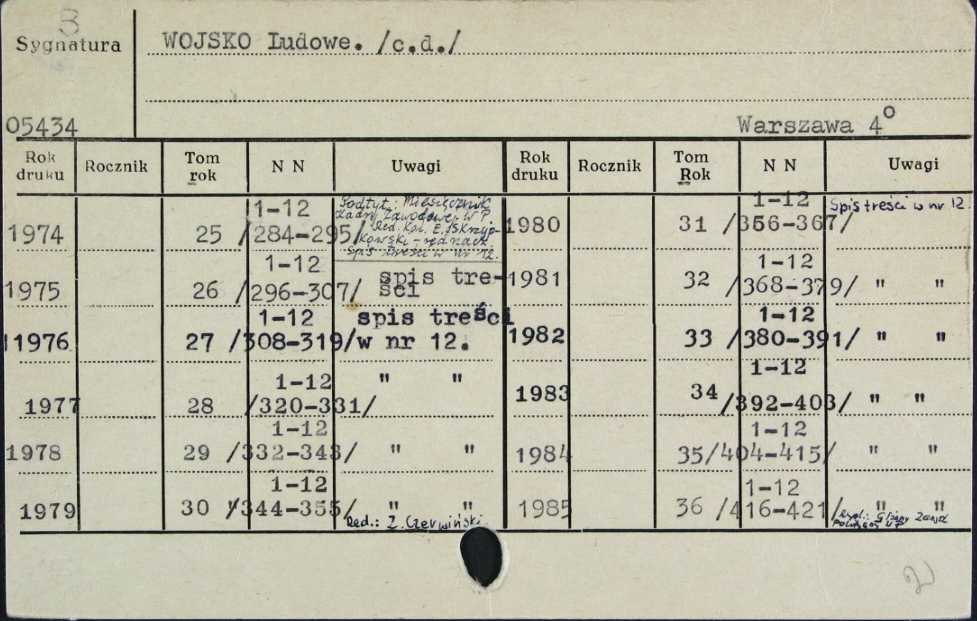 B
Sygnatura
WOJSKO Ludowe. /c.d./
05434
Warszawa 4°
Rok druku Rocznik Tom rok N N Uwagi Rok druku Rocznik Tom Rok N N Uwagi
1974 25 1-12 /284-295/ Podtyt.: Miesięcznik
Kadry Zawodowej WP
Red. Kol. E.
kowski - red. nacz.
spis treści w nr 12.
1975 26 1-12 /296-307/ spis treści
1976 27 1-12 /308-319/ spis treści w nr 12.
1977 28 1-12 /320-331/ " "
1978 29 1-12 /332-343/ " "
1979 30 1-12 /344-355/ " "
Red.: Z. Czerwiński.
1980 31 1-12 /356-367/ Spis treści w nr 12.
1981 32 1-12 /368-379/ " "
1982 33 1-12 /380-391/ " "
1983 34 1-12 /392-403/ " "
1984 35 1-12 /404-415/ " "
1985 36 1-12 /416-421/ " "
Wyd.: Główny Zarząd
WP
2